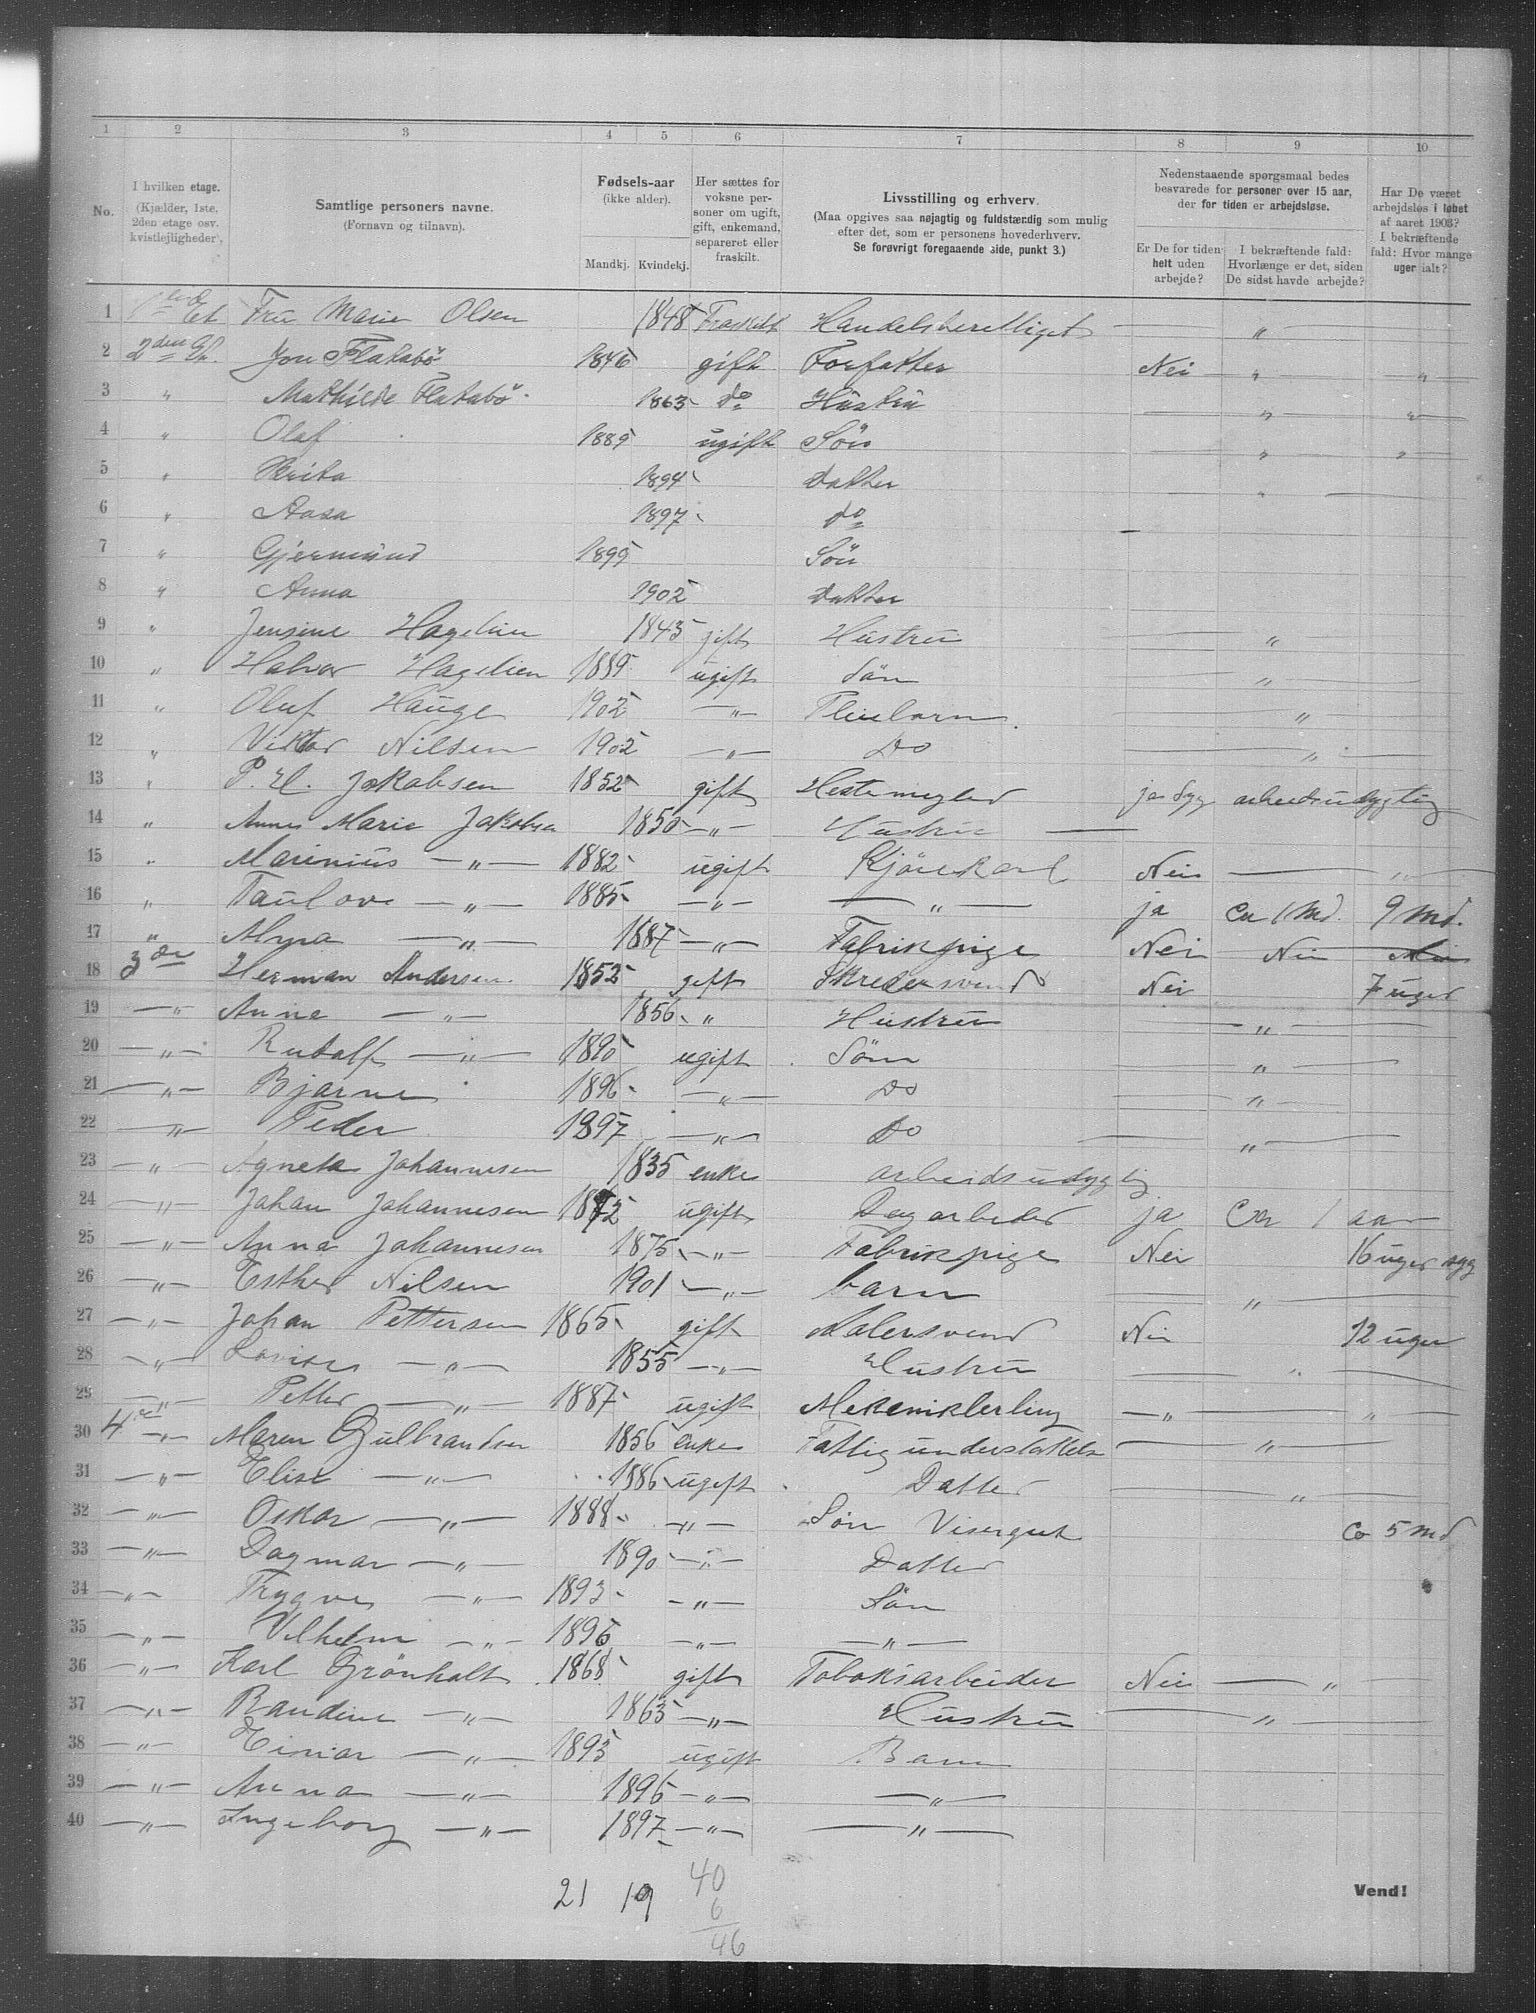 1 2 3 4 5 6 7 8 9 10
No.
I hvilken etage.
(Kjælder, 1ste. 2den etage osv. kvistleiligheder).
Samtlige personers navne.
(Fornavn og tilnavn).
Fødsels-aar
(ikke alder).
Mandkj. Kvindekj.
Her sættes for voksne personer om ugift, gift, enkemand, separeret eller fraskilt.
Livsstilling og erhverv.
(Maa opgives saa nøjagtig og fuldstærdig som mulig efter det, som er personens hovederhverv.
Se forøvrigt foregaaende side, punkt 3.)
Nedenstaaende spørgsmaal bedes besvarede for personer over 15 aar, der for tiden er arbejdsløse.
Er De for tiden helt uden arbejde?
I bekræftende fald: Hvorlænge er det, siden De sidst havde arbejde?
Har De været arbejdsløs i løbet af aaret 1903? I bekræftende fald: Hvor mange uger ialt?
1 Et Fru Marie Olsen 1848 Fraskilt Handelsberettiget — „
2 2den Et. Jon Flatabö 1846 gift Forfatter Nei — „ — „
3 „ Mathilde Flatabö 1863 do Hüstru — „ — „
4 „ Olaf 1885 ugift Sön — „ — „
5 „ 1894 Datter — „ —
6 „ Aasa 1897 do —
7 „ Gjermünd 1899 Sön
8 „ Anna 1902 Datter
9 „ Jensine Hagelien 1843 gift Hüstru — „
10 „ Halvor Hagelien 1889 ugift Sön — „
11 „ Oluf Hauge 1902 — „ — Pleiebarn — „
12 „ Viktor Nilsen 1902 — „ — Do — „ —
13 „ P. H. Jakobsen 1852 gift Hestemegler ja syg arbeidsudygtig
14 „ Anne Marie Jakobsen 1850 — „ — Hustru —
15 „ Marinius — „ — 1882 ugift Kjörekarl Nei — „ —
16 „ — „ — 1885 — „ — — „ — ja Ca 1 Md. 9 Md.
17 „ Alma — „ — 1887 — „ — Fabrikpige Nei Nei Nei
18 3de Herman Andersen 1852 gift Skredersvend Nei 7 uger
19 — „ Anne — „ — 1856 „ Hustru — „ —
20 — „ — Rudolf — „ — 1895 ugift Sön — „ —
21 — „ — Bjarne 1896 — „ — Do — „ —
22 — „ — Peder 1897 — „ — Do — „ —
23 — „ — Agneta Johannesen 1835 enke arbeidsudygtig
24 — „ — Johan Johannesen 1872 ugift Dagarbeider ja Ca 1 aar
25 — „ — Anna Johannesen 1875 — „ — Fabrikpige Nei 16 uger syg
26 — „ — Esther Nilsen 1901 — „ — barn — „ —
27 — „ — Johan Pettersen 1865 gift Malersvend Nei 12 uger
28 — „ — Lovise — „ — 1855 — „ — Hustru — „ —
29 — „ — Petter — „ — 1887 ugift Mekaniklerling — „ — „
30 4de — „ — Maren Gulbrandsen 1856 enke Fattigunderstöttelse — „ —
31 — „ — Elise — „ — 1886 ugift Datter — „ —
32 — „ — Oskar — „ — 1888 — „ — Sön Visergut Ca 5 Md
33 — „ — Dagmar — „ — 1890 — „ — Datter
34 — „ — Trygve — „ — 1893 — „ — Sön
35 — „ — Vilhelm — „ — 1896 — „ — — „ —
36 — „ — Karl Grönholt 1868 gift Tobaksarbeider Nei — „ —
37 — „ — Randine — „ — 1863 — „ — Hustru — „ —
38 — „ — Einar — „ — 1893 ugift Barn
39 — „ — Anna — „ — 1896 — „ — — „ —
40 — „ — Ingeborg — „ — 1897 — „ — — „ —
21 19 40
6
46
Vend!